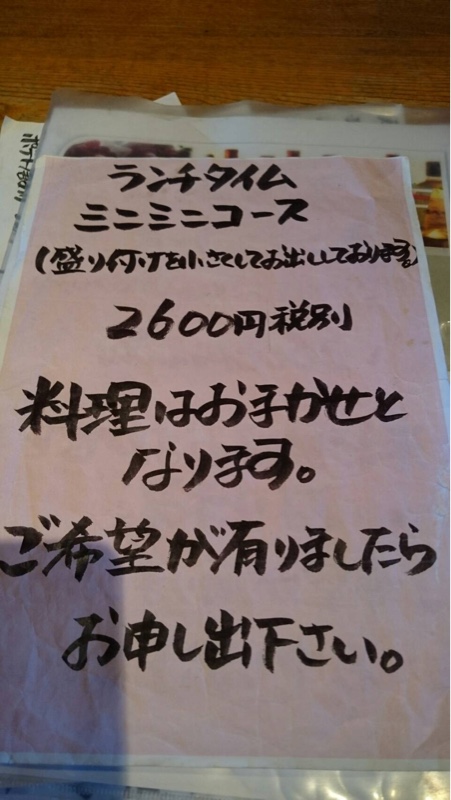 ランチタイム
ミニミニコース
(盛り付けを小さくしてお出ししております。)
2600円税別
料理はおまかせと
なります。
ご希望が有りましたら
お申し出下さい。